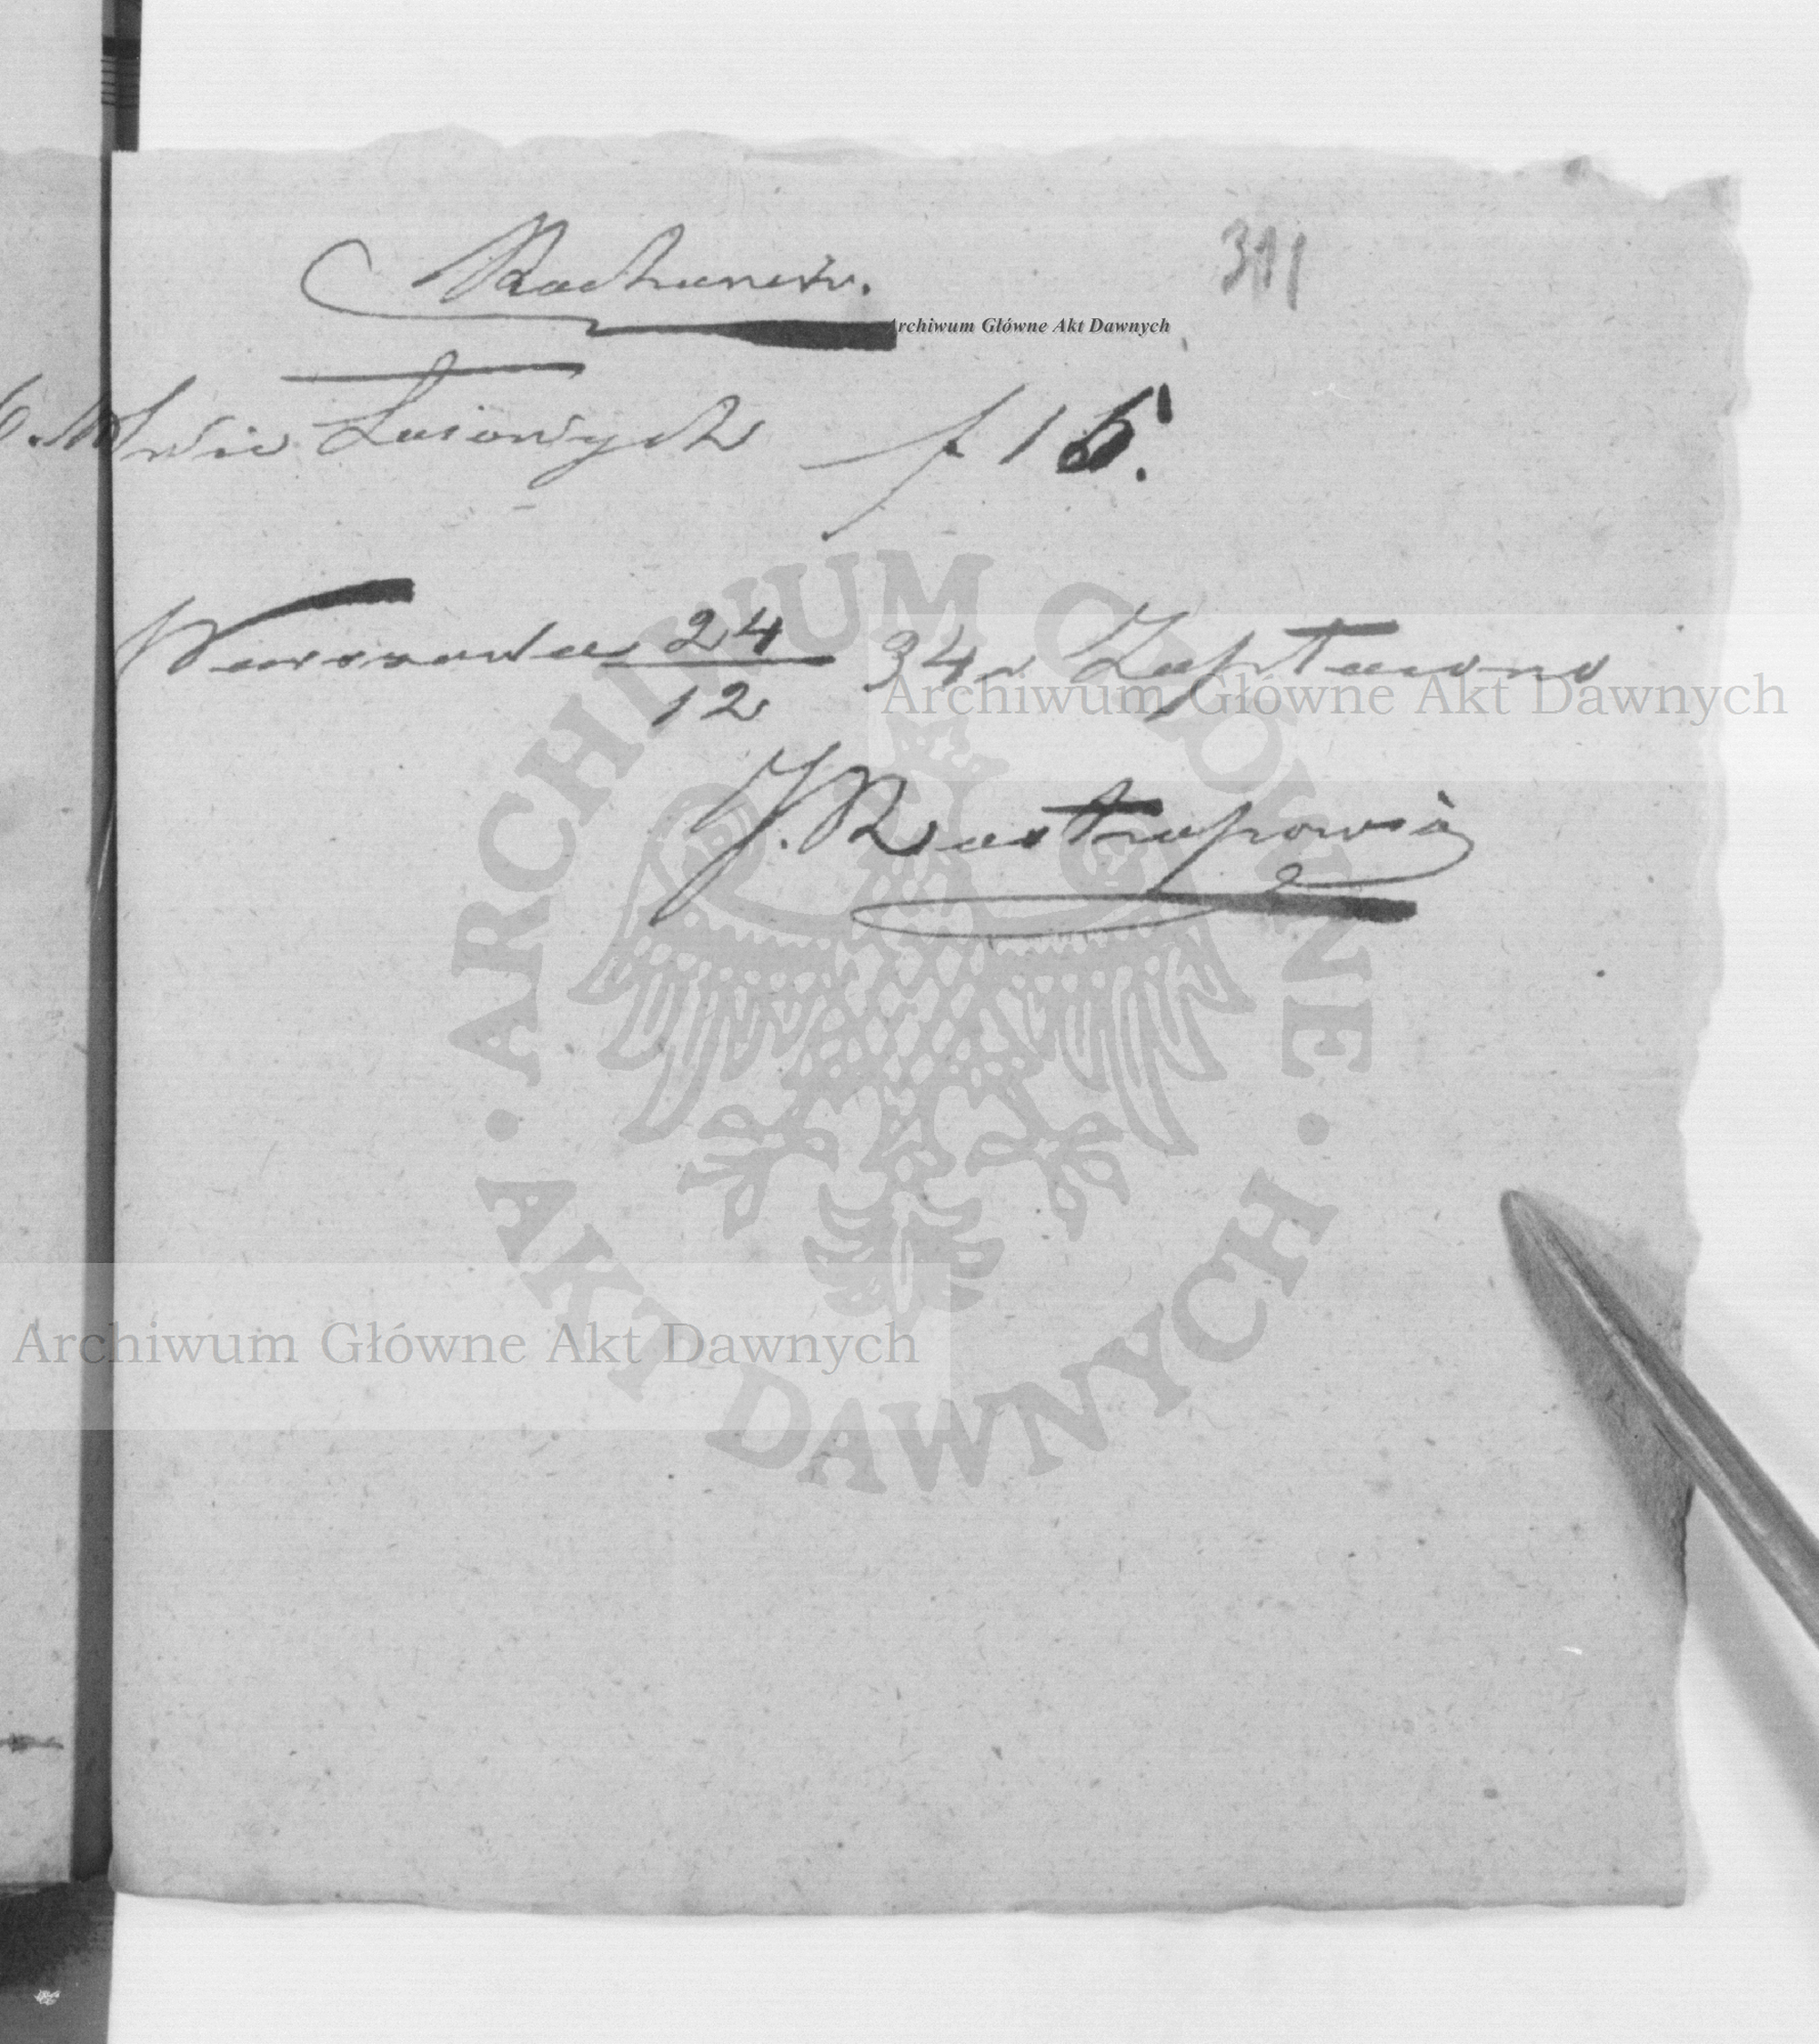 Rachunek.
311
Archiwum Główne Akt Dawnych
Świc Łojowych f 15.
Warszawa 24/12 34 r Zapłacono
Archiwum Główne Akt Dawnych
J. Rostropowicz
ARCHIWUM GŁÓWNE
AKT DAWNYCH
Archiwum Główne Akt Dawnych